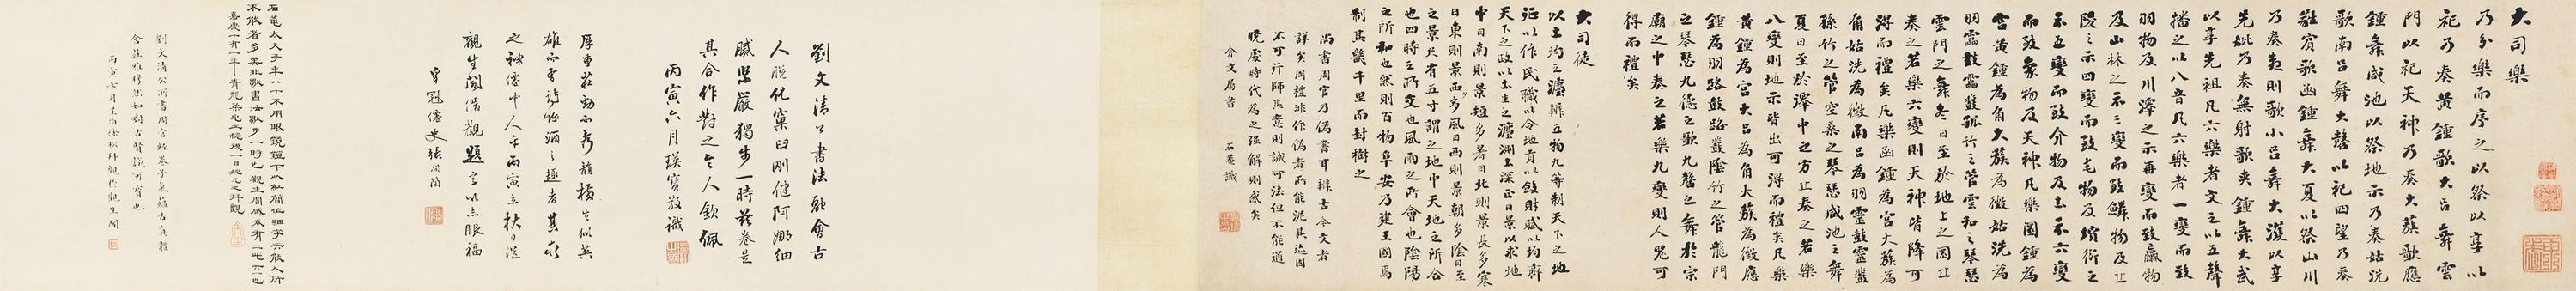 大司樂
乃分樂而序之以祭以享以
祀乃奏黃鍾歌大呂舞雲
門以祀天神乃奏大簇歌應
鍾舞咸池以祭地示乃奏姑洗
歌南呂舞大磬以祀四望乃奏
蕤賓歌函鍾舞大夏以祭山川
乃奏夷則歌小呂舞大濩以享
先妣乃奏無射歌夾鍾舞大武
以享先祖凡六樂者文之以五聲
播之以八音凡六樂者一變而致
羽物及川澤之示再變而致臝物
及山林之示三變而致鱗物及丘
陵之示四變而致毛物及墳衍之
示五變而致介物及土示六變
而致象物及天神凡樂圜鍾為
宮黃鍾為角大簇為徵姑洗為
羽靁鼓靁鼗孤竹之管雲和之琴瑟
雲門之舞冬日至於地上之圜丘
奏之若樂六變則天神皆降可
得而禮矣凡樂函鍾為宮大簇為
角姑洗為徵南呂為羽靈鼓靈鼗
孫竹之管空桑之琴瑟咸池之舞
夏日至於澤中之方丘奏之若樂
八變則地示皆出可得而禮矣凡樂
黃鍾為宮大呂為角大簇為徵應
鍾為羽路鼓路鼗陰竹之管龍門
之琴瑟九德之歌九磬之舞於宗
廟之中奏之若樂九變則人鬼可
得而禮矣
大司徒
以土均之灋辨五物九等制天下之地
征以作民職以令地貢以斂財賦以均齊
天下之政以土圭之灋測土深正日景以求地
中日南則景短多暑日北則景長多寒
日東則景夕多風日西則景朝多陰日至
之景尺有五寸謂之地中天地之所合
也四時之所交也風雨之所會也陰陽
之所和也然則百物阜安乃建王國焉
制其畿千里而封樹之
尚書周官乃偽書耳辨古今文者
詳矣周禮非作偽者所能泥其迹固
不可行師其意則誠可法但不能通
曉度時代為之強解則惑矣
介文局書 石菴識
劉文清公書法融會古
人脫化窠臼剛健阿娜細
膩謹嚴獨步一時茲卷是
其合作對之令人欽佩
丙寅六月瑛寶敬識
厚重莊勁而秀韻橫生似英
雄而兼詩怡酒之趣者其食
之神僊中人乎丙寅立秋日從
觀生閣借觀題言以志眼福
笑冠僊史張問陶
石菴太夫子年八十不用眼鏡鐙下以紅簡作細字示敬人所
不能者多矣非獨書法獨步一時也觀生閣藏卷有二此其一也
嘉慶十有一年青龍柔兆之極後一日姚元之拜觀
劉文清公所書周官經卷子氣蘊古真體
含莊雅穆然如對古彝誠可寶也
丙寅七月星伯徐松拜觀於觀生閣